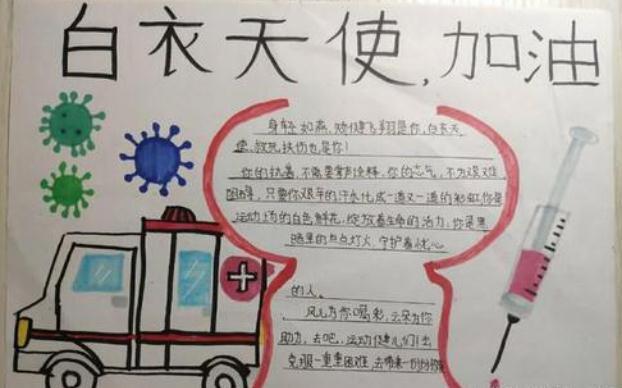 白衣天使,加油
身轻如燕,矫健飞翔是你,白衣天
使,救死扶伤也是你!
你的执著,不需要掌声诠释,你的志气,不为艰难
阻挡,只要你艰辛的汗水化成一道又一道的彩虹,你是
运动场的白色鲜花,绽放着生命的活力,你是黑
暗里的点点灯火,守护着忧心
的人。
风儿为你喝彩,云朵为你
助力,去吧,运动健儿们!去
克服一重重困难,去带来一份份